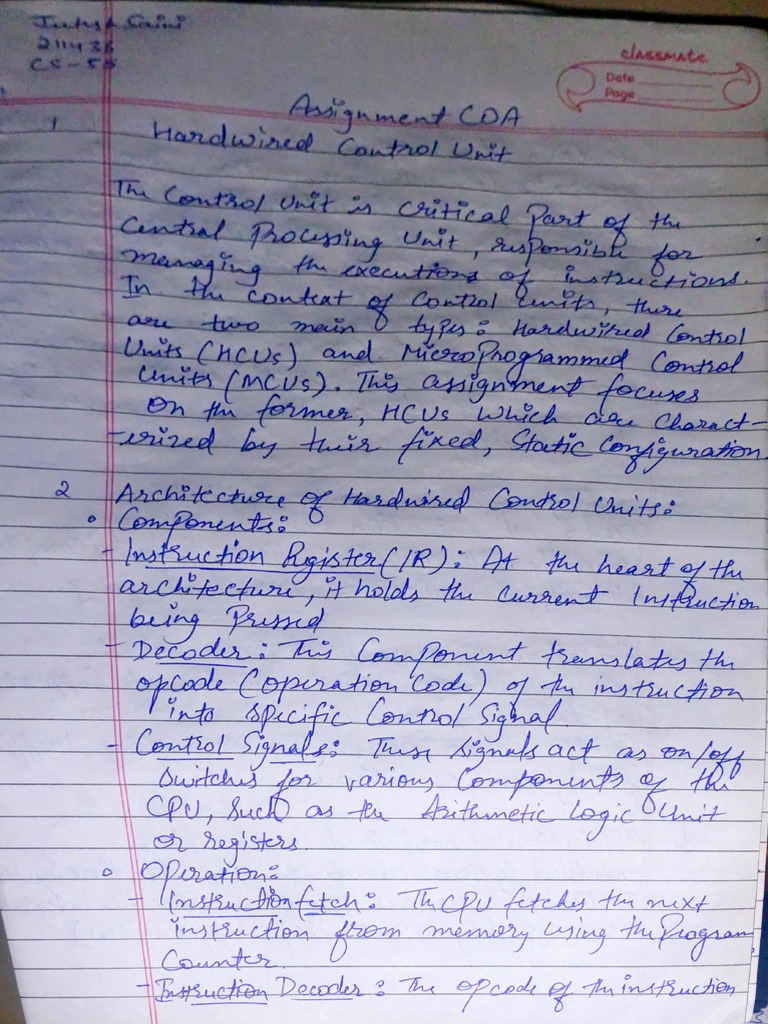 Saini
211436
CS-55
classmate
Date
Page
Assignment COA
1 Hardwired Control Unit
The Control Unit is critical Part of the
Central Processing Unit, responsible for
managing the executions of instructions.
In the context of Control Units, there
are two main types: Hardwired Control
Units (HCUs) and MicroProgrammed Control
Units (MCUs). This assignment focuses
on the former, HCUs which are charact-
-erized by their fixed, Static Configuration
2 Architecture of Hardwired Control Units:
Components:
- Instruction Register (IR): At the heart of the
architecture, it holds the current Instruction
being Pressed
- Decoder: This Component translates the
opcode (operation Code) of the instruction
into specific Control Signal.
- Control Signals: These signals act as on/off
switches for various Components of the
CPU, such as the Arithmetic Logic Unit
or registers.
Operation:
- Instruction fetch: The CPU fetches the next
instruction from memory using the Program
Counter.
- Instruction Decoder: The opcode of the instruction